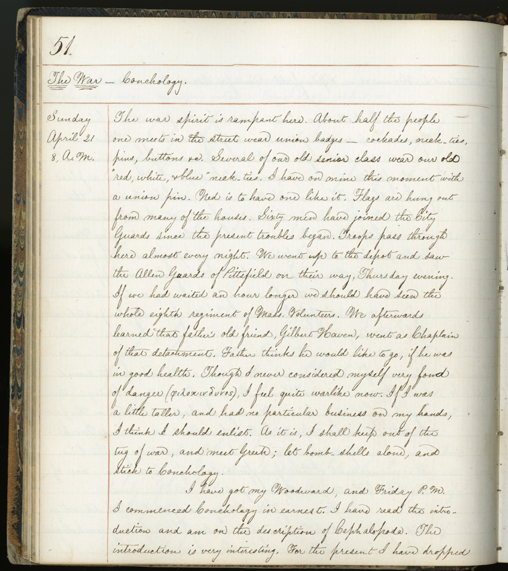 51.
The War — Conchology.
Sunday
April 21
8, A.M.
The war spirit is rampant here. About half the people
one meets in the street wear union badges — cockades, neck-ties,
pins, buttons &c. Several of our old senior class wear our old
"red, white, & blue" neck-ties. I have on mine this moment with
a union pin. Ned is to have one like it. Flags are hung out
from many of the houses. Sixty men have joined the City
Guards since the present troubles began. Troops pass through
here almost every night. We went up to the depot and saw
the Allen Guards of Pittsfield on their way, Thursday evening.
If we had waited an hour longer we should have seen the
whole eighth regiment of Mass. Volunteers. We afterwards
learned that father's old friend, Gilbert Haven, went as Chaplain
of that detachment. Father thinks he would like to go, if he was
in good health. Though I never considered myself very fond
of danger (φιλοκινδυνος), I feel quite warlike now. If I was
a little taller, and had no particular business on my hands,
I think I should enlist. As it is, I shall keep out of the
tug of war, and meet Greek; let bomb-shells alone, and
stick to Conchology.
I have got my Woodward, and Friday P.M.
I commenced Conchology in earnest. I have read the intro-
duction and am on the description of Cephalopoda. The
introduction is very interesting. For the present I have dropped